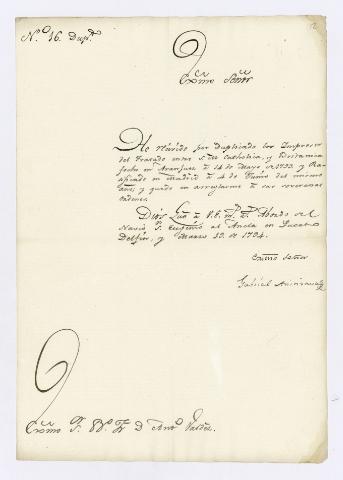 N.º 16. Dup.do
Exmo Señor
He recivido por duplicado los Impresos
del Tratado entre S. M. Catholica, y Britanica
fecho en Aranjuez à 14 de Mayo de 1793 y Ra-
tificado en Madrid à 4 de Junio del mismo
año; y quedo en arreglarme à sus
ordenes.
Dios Gue à V. E. ms. as. Abordo del
Navio Sn. Eugenio al Ancla en Puerto
Delfin, y Marzo 19. de 1794.
Exmo Señor
Gabriel
Exmo Sr. Bo. Fr. Dn. Anto. Valdes.